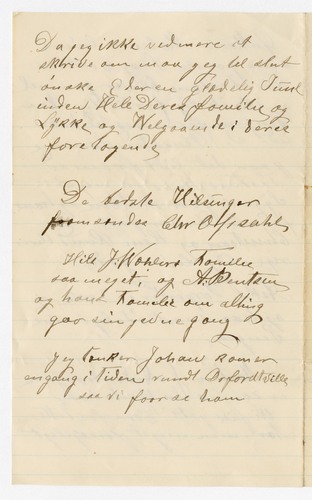 Da jeg ikke ved mere at
skrive om maa jeg til slut
önske Eder en glædelig Juul
inden Hele Deres familie og
Lykke og Velgaaende i deres
foretagende
De bedste Hilsninger
fra Chr Offsdahl
Hils J. Wohlers Familie
saa meget, og A. Bentsen
og hans Familie om alting
gaar sin jevne gang
Jeg tenker Johan komer
engang i tiden rundt Orfordtville
saa vi faar se ham